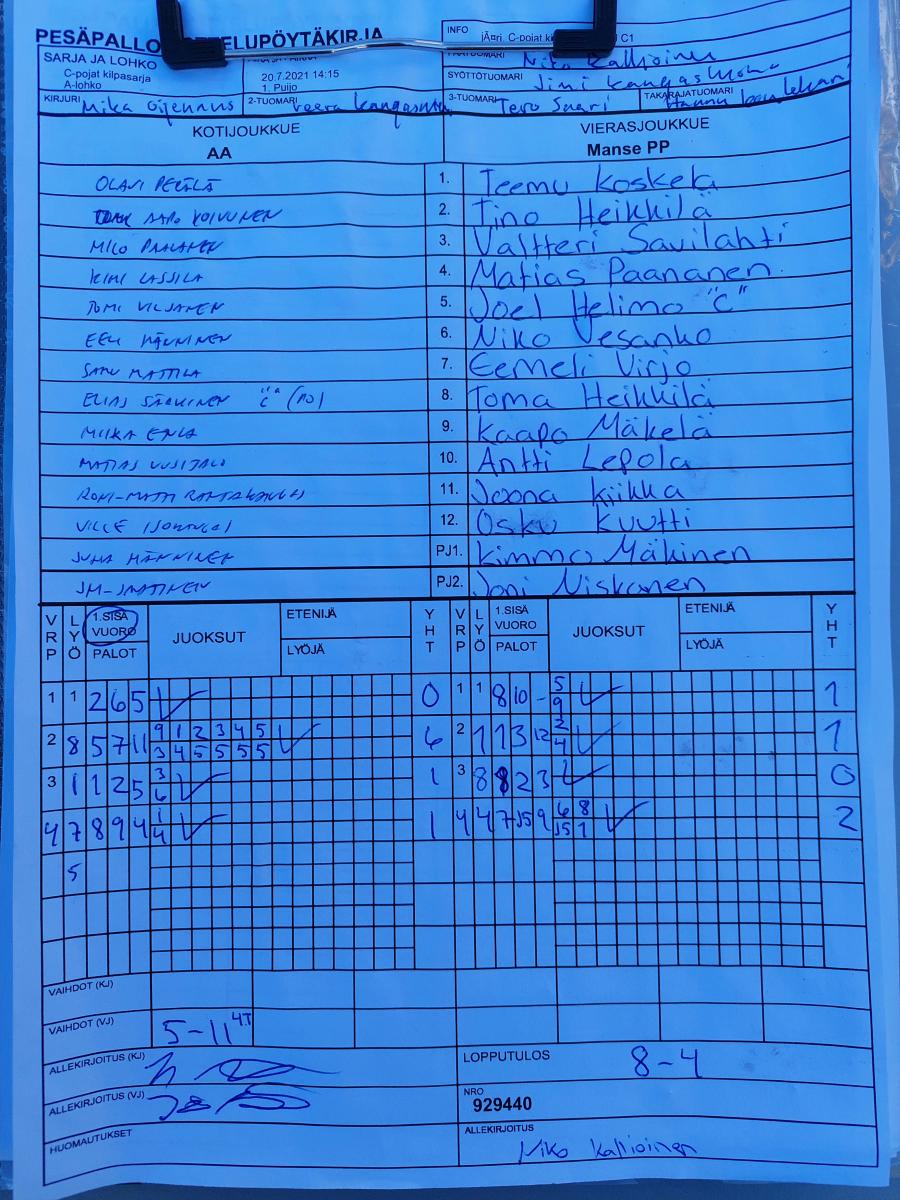 PESÄPALLO
INFO C-pojat C1
SARJA JA LOHKO
C-pojat kilpasarja
A-lohko
20.7.2021 14:15
1. Puijo
Niko Kallioinen
SYÖTTÖTUOMARI Jimi
KIRJURI Mika Ojennus 2-TUOMARI Veera 3-TUOMARI Tero Suari TAKARAJATUOMARI Hannu
KOTIJOUKKUE VIERASJOUKKUE
AA Manse PP
OLAVI PERÄLÄ 1. Teemu Koskela
AAPO KOIVUNEN 2. Tino Heikkilä
MICO PAALANEN 3. Valtteri Savilahti
KIMI LASSILA 4. Matias Paananen
TOMI VILJANEN 5. Joel Helimo "C"
EELI MÄNNINEN 6. Niko Vesanko
SAMU MATTILA 7. Eemeli Virjo
ELIAS "C" 8. Toma Heikkilä
MIIKA 9. Kaapo Mäkelä
MATIAS UUSITALO 10. Antti Lepola
RONI-MATTI 11. Joona Kiikka
VILLE 12. Osku Kuutti
JUHA MÄNNINEN PJ1. Kimmo Mäkinen
PJ2. Joni Niskanen
VRP LYÖ 1.SISÄ VUORO PALOT JUOKSUT ETENIJÄ LYÖJÄ YHT VRP LYÖ 1.SISÄ VUORO PALOT JUOKSUT ETENIJÄ LYÖJÄ YHT
1 1 2 6 5 0 1 1 8 10 - 5 1
9
2 8 5 7 11 9 1 2 3 4 5 6 2 1 1 3 12 2 1
3 4 5 5 5 5 4
3 1 1 2 5 3 1 3 8 8 2 3 0
6
4 7 8 9 4 1 1 4 4 7 15 9 6 8 2
4 15 1
5
VAIHDOT (KJ)
VAIHDOT (VJ) 5-11 4T
ALLEKIRJOITUS (KJ) LOPPUTULOS 8-4
ALLEKIRJOITUS (VJ) NRO 929440
HUOMAUTUKSET ALLEKIRJOITUS Niko Kallioinen